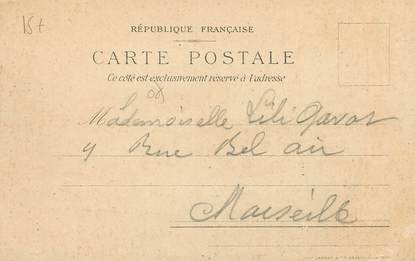 15+
RÉPUBLIQUE FRANÇAISE
CARTE POSTALE
Ce côté est exclusivement réservé à l'adresse
Mademoiselle Lili Gavot
9 Rue Bel air
Marseille